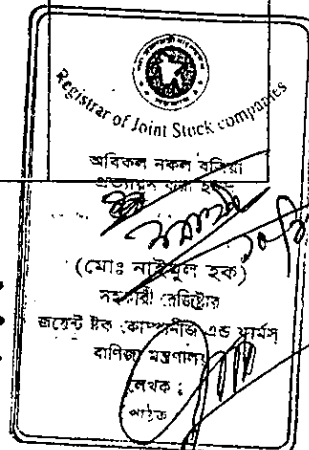 Registrar of Joint Stock companies
অবিকল নকল বলিয়া
প্রত্যায়ন করা হইল
(মোঃ নাইমুল হক)
সহকারী রেজিষ্টার
জয়েন্ট ষ্টক কোম্পানীজ এন্ড ফার্মস্
বাণিজ্য মন্ত্রণালয়
লেখক :
পাঠক